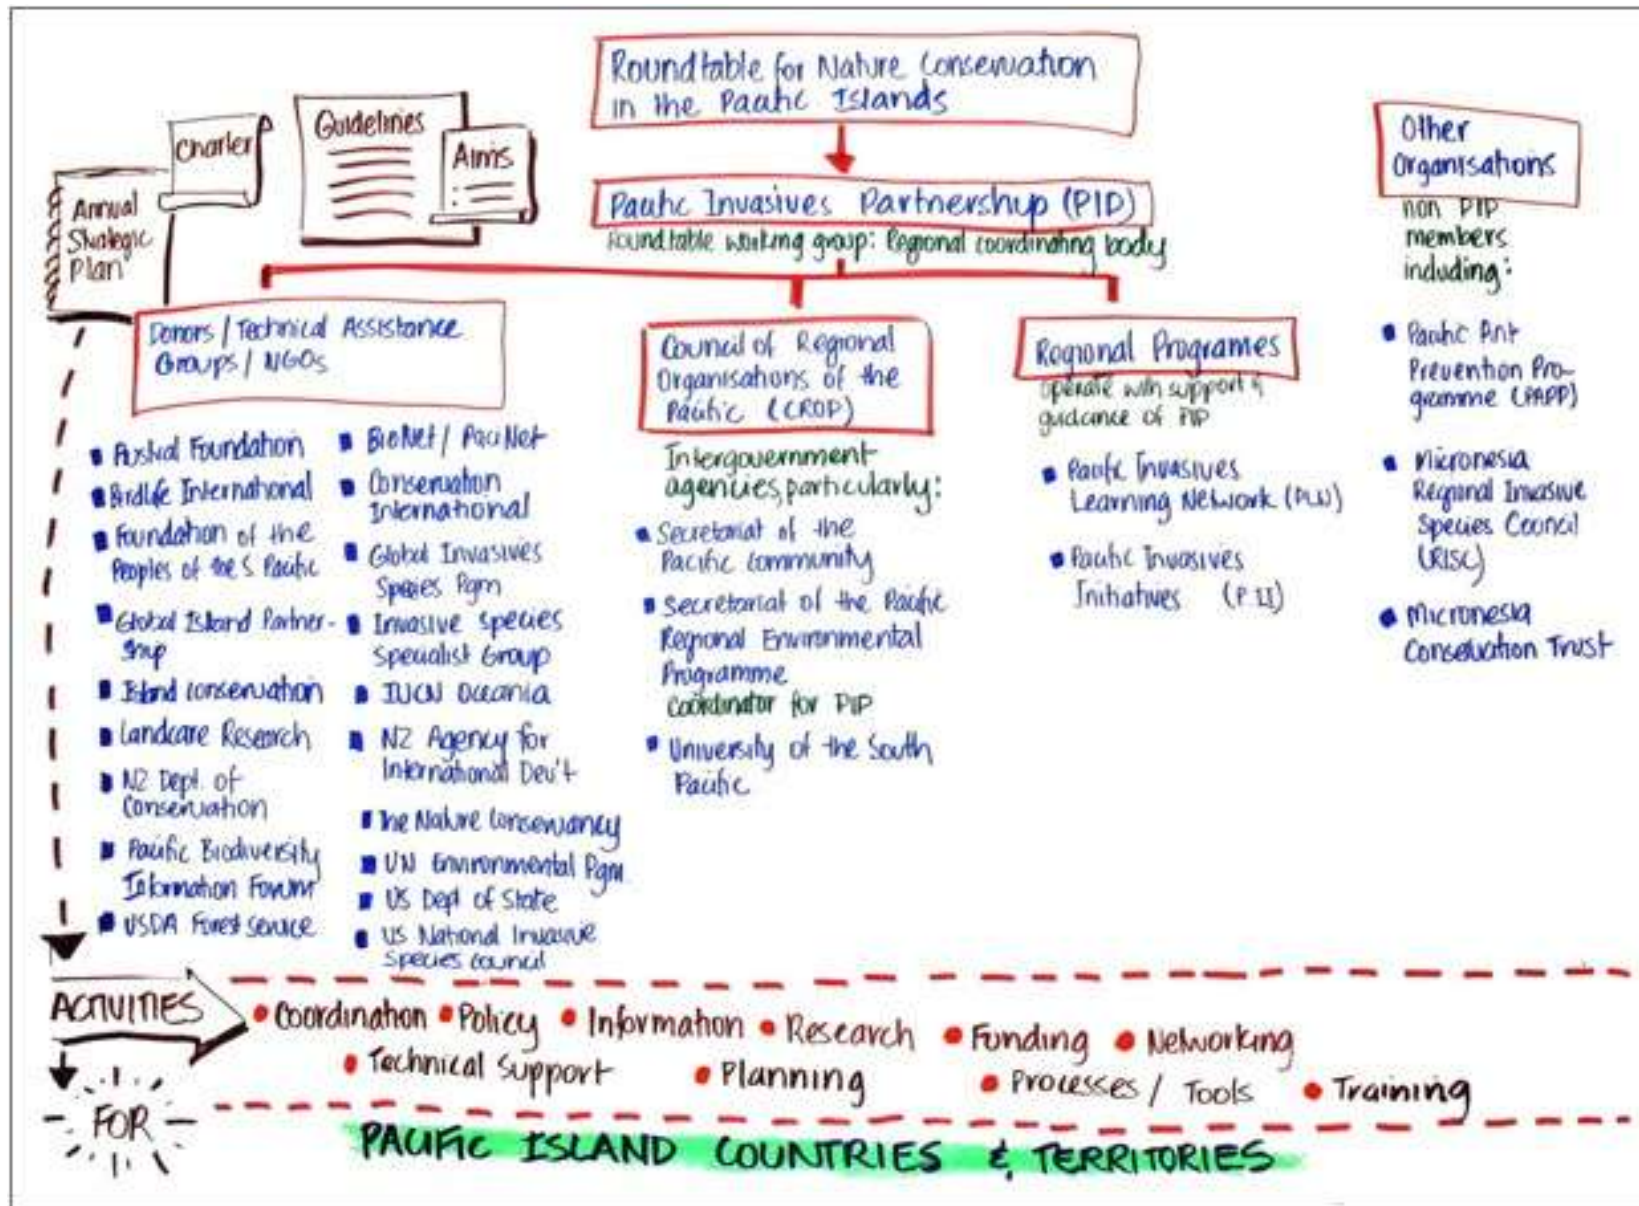 Roundtable for Nature Conservation
in the Pacific Islands
Charter
Guidelines
Aims
Annual
Strategic
Plan
Pacific Invasives Partnership (PIP)
Roundtable working group: Regional coordinating body
Donors / Technical Assistance
Groups / NGOs
Austral Foundation
Birdlife International
Foundation of the
Peoples of the S. Pacific
Global Island Partner-
ship
Island conservation
Landcare Research
NZ Dept. of
Conservation
Pacific Biodiversity
Information Forum
USDA Forest Service
BioNet / PaciNet
Conservation
International
Global Invasives
Species Pgm
Invasive species
Specialist Group
IUCN Oceania
NZ Agency for
International Dev't
The Nature Conservancy
UN Environmental Pgm
US Dept of State
US National Invasive
Species Council
Council of Regional
Organisations of the
Pacific (CROP)
Intergovernment
agencies, particularly:
Secretariat of the
Pacific Community
Secretariat of the Pacific
Regional Environmental
Programme
Coordinator for PIP
University of the South
Pacific
Regional Programes
operate with support &
guidance of PIP
Pacific Invasives
Learning Network (PLN)
Pacific Invasives
Initiatives (PII)
Other
Organisations
non PIP
members
including:
Pacific Ant
Prevention Pro-
gramme (PAPP)
Micronesia
Regional Invasive
Species Council
(RISC)
Micronesia
Conservation Trust
ACTIVITIES
Coordination Policy Information Research Funding Networking
Technical Support Planning Processes / Tools Training
FOR
PACIFIC ISLAND COUNTRIES & TERRITORIES